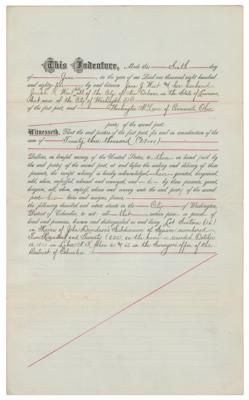 This Indenture, Made this Sixth day
of June in the year of our Lord one thousand eight hundred
and eighty by and between Jane J. West and her husband
Joseph R. West of the City of New Orleans, in the State of Louisiana,
now of the City of Washington D.C.
of the first part, and Washington McLean of Cincinnati, Ohio
party of the second part:
Witnesseth, That the said parties of the first part, for and in consideration of the
sum of Ninety three thousand
Dollars, in lawful money of the United States, to them in hand paid by
the party of the second part, at and before the sealing and delivery of these
presents, the receipt whereof is hereby acknowledged have granted, bargained,
sold, aliened, enfeoffed, released and conveyed, and do by these presents, grant,
bargain, sell, alien, enfeoff, release and convey unto the said party of the second
part his heirs and assigns, forever,
the following described real estate situate in the City of Washington,
District of Columbia, to wit: all that certain piece or parcel of
land and premises, known and distinguished as and being Lot Sixteen (16)
in Heirs of John Davidson's Subdivision of Square numbered
Two Hundred and Twenty (220), as the same is recorded
in Liber of the Surveyor's office of the
District of Columbia